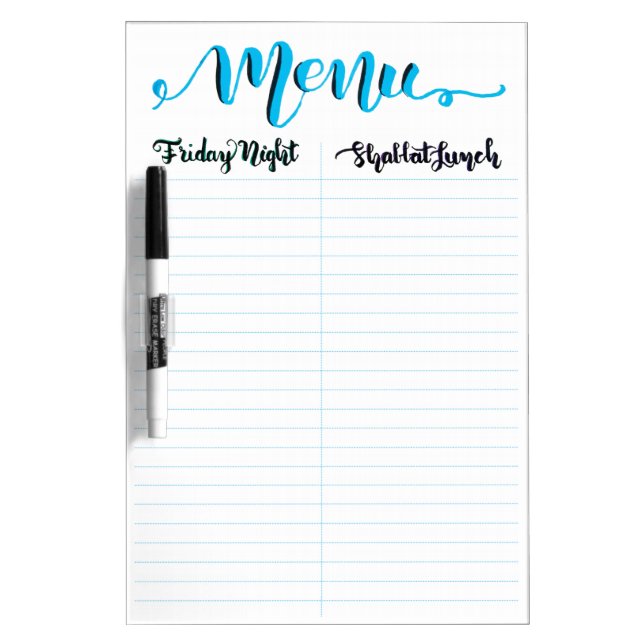 Menu
Friday Night
Shabbat Lunch
DRY ERASE MARKER